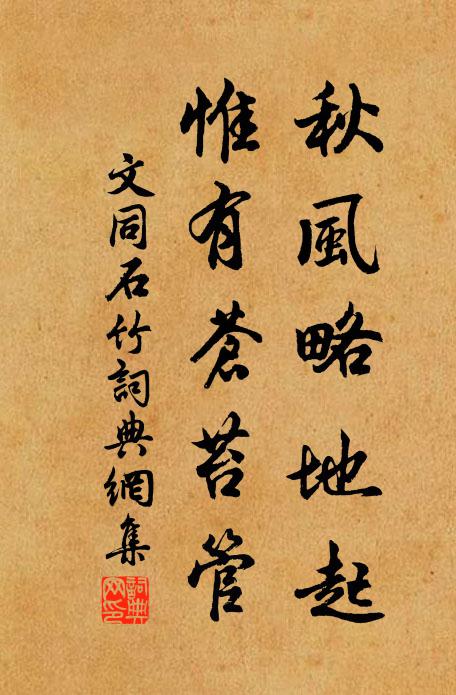 秋風略地起
惟有蒼苔管
文同石竹詞典網集
詞典
网印